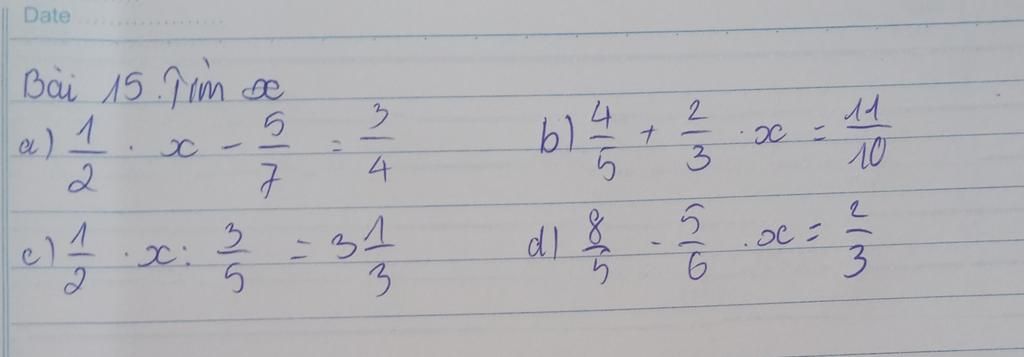 Date
Bài 15. Tìm x
a) 1/2 . x - 5/7 = 3/4 b) 4/5 + 2/3 . x = 11/10
c) 1/2 . x : 3/5 = 3 1/3 d) 8/5 - 5/6 . x = 2/3